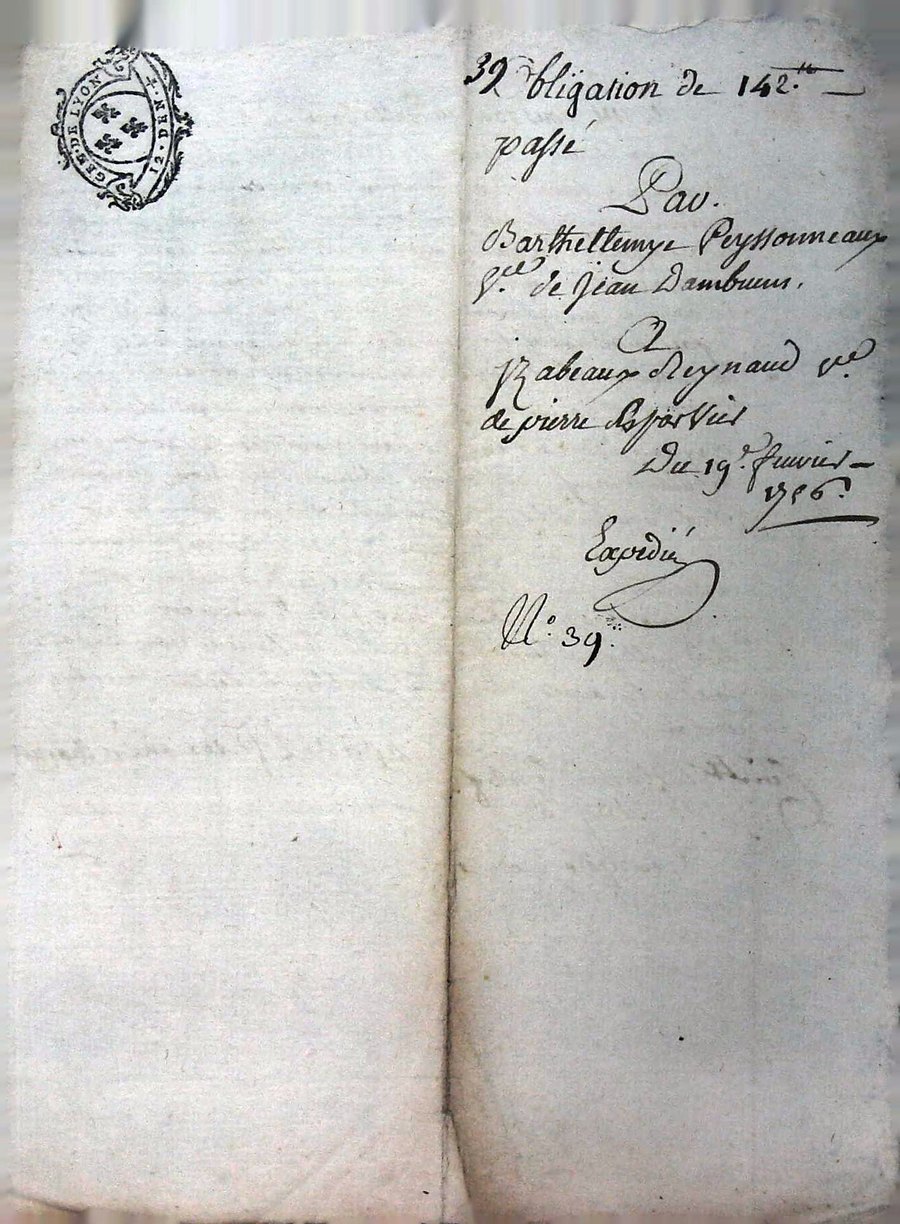 GEN. DE LYON
12. DEN. ET
39 obligation de 142.lt
passé
Par.
Barthellemye Peyssonneaux
v.e de Jean
A
Izabeaux Reynaud v.e
de pierre
Du 19.e
1756.
Expedié
N.o 39.